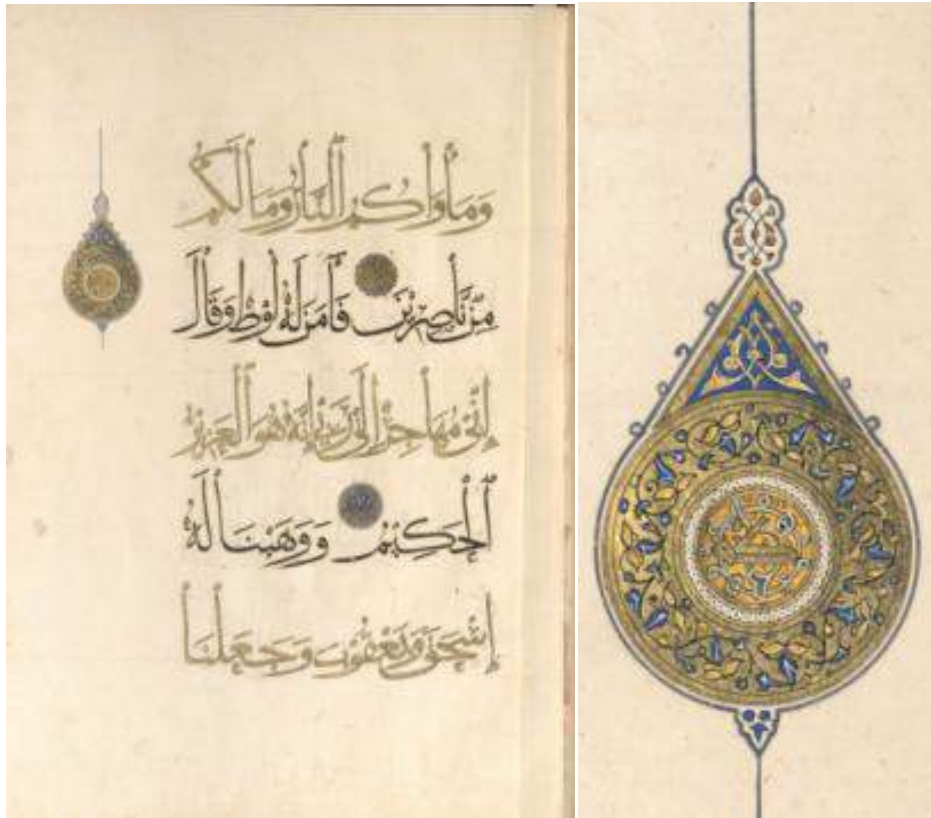 وَمَأْوَاكُمُ النَّارُ وَمَا لَكُم
مِّن نَّاصِرِينَ فَآمَنَ لَهُ لُوطٌ وَقَالَ
إِنِّي مُهَاجِرٌ إِلَىٰ رَبِّي إِنَّهُ هُوَ الْعَزِيزُ
الْحَكِيمُ وَوَهَبْنَا لَهُ
إِسْحَقَ وَيَعْقُوبَ وَجَعَلْنَا